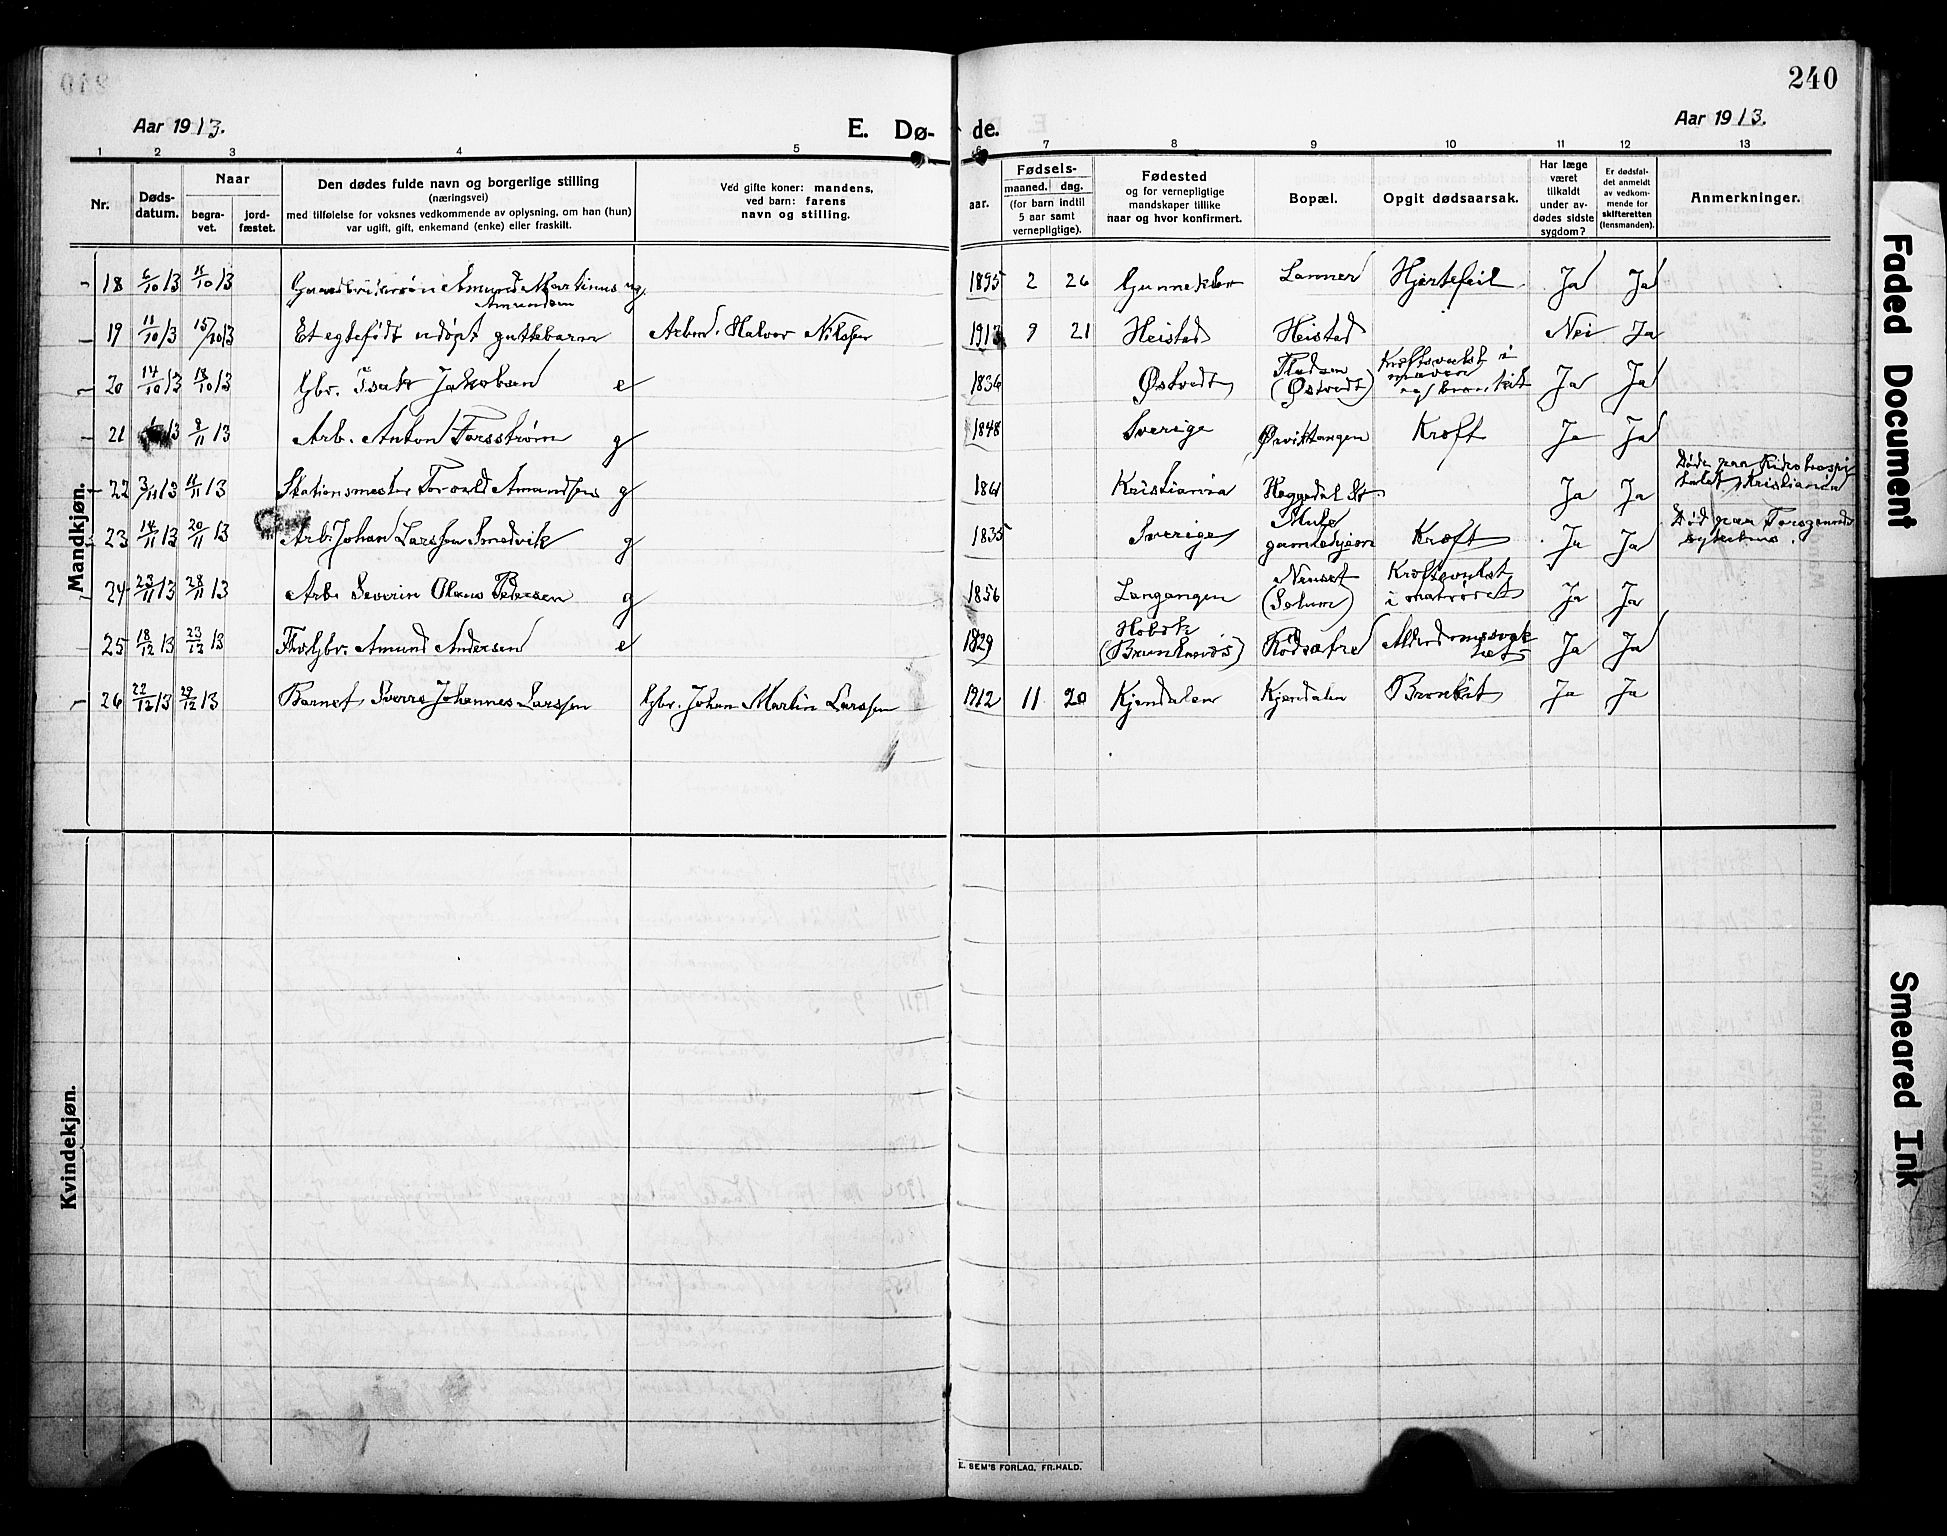 240
Aar 1913.
E. Dø- de.
Aar 1913.
1 2 3 4 5 6 7 8 9 10 11 12 13
Nr.
Døds-
datum.
Naar
begra-
vet.
jord-
fæstet.
Den dødes fulde navn og borgerlige stilling
(næringsvei)
med tilføielse for voksnes vedkommende av oplysning, om han (hun)
var ugift, gift, enkemand (enke) eller fraskilt.
Ved gifte koner: mandens,
ved barn: farens
navn og stilling.
Fødsels-
aar.
maaned. dag.
(for barn indtil
5 aar samt
vernepligtige).
Fødested
og for vernepligtige
mandskaper tillike
naar og hvor konfirmert.
Bopæl.
Opgit dødsaarsak.
Har læge
været
tilkaldt
under av-
dødes sidste
sygdom?
Er dødsfal-
det anmeldt
av vedkom-
mende for
skifteretten
(lensmanden).
Anmerkninger.
Mandkjøn.
18 6/10 13 11/10 13 Gaardbrukersøn Amund Martinus ug. 1895 2 26 Gunneklev Lanner Hjertefeil Ja Ja
Amundsen
19 11/10 13 15/10 13 Et egtefødt udøpt guttebarn Arbm. Halvor Nilssen 1913 9 21 Heistad Heistad Nei Ja
20 14/10 13 18/10 13 Gbr. Isak Jakobsen e 1836 Østvedt (Østvedt) Kræftsvulst i maven og bronkit Ja Ja
21 13 8/11 13 Arb. Anton Forsstrøm g 1848 Sverige Ørviktangen Kræft Ja Ja
22 3/11 13 11/11 13 Stationsmester Torvald Amundsen g 1861 Kristiania Heggedal St. Ja Ja
Kristiania
23 14/11 13 20/11 13 Arb. Johan Larssen Smedvik g 1835 Sverige gamlehjem Kræft Ja Ja Død paa
24 23/11 13 28/11 13 Arb. Severin Olaus Petersen g 1856 Langangen Nenset (Solum) Kræftsvulst i Ja Ja
25 18/12 13 23/12 13 Amund Andersen e 1829 Hobøk Rødsætre Alderdomssvak- het Ja Ja
26 22/12 13 29/12 13 Barnet Sverre Johannes Larssen Gbr. Johan Martin Larssen 1912 11 20 Kjendalen Kjendalen Bronkit Ja Ja
Kvindekjøn.
E. SEM'S FORLAG, FR.HALD.
Faded Document
Smeared Ink